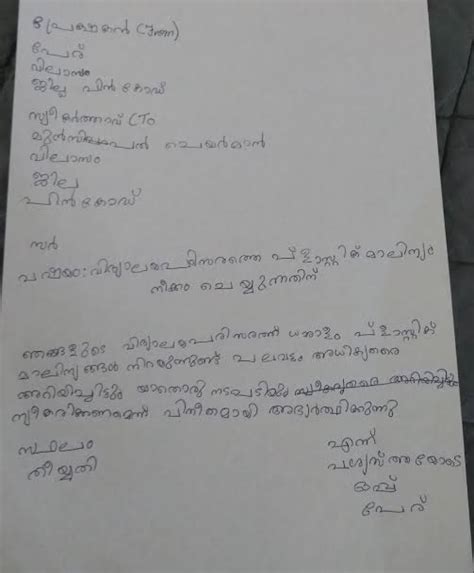 പ്രേക്ഷകൻ (From)
പേര്
വിലാസം
ജില്ല പിൻകോഡ്
സ്വീകർത്താവ് (To
മുൻസിപ്പൽ ചെയർമാൻ
വിലാസം
ജില്ല
പിൻകോഡ്
സർ
വിഷയം: വിദ്യാലയപരിസരത്തെ പ്ളാസ്റ്റിക് മാലിന്യം
നീക്കം ചെയ്യുന്നതിന്
ഞങ്ങളുടെ വിദ്യാലയപരിസരത്ത് ധാരാളം പ്ളാസ്റ്റിക്
മാലിന്യങ്ങൾ നിറയുന്നുണ്ട് പലവട്ടം അധികൃതരെ
അറിയിച്ചിട്ടും യാതൊരു നടപടിയും
സ്വീകരിക്കണമെന്ന് വിനീതമായി അഭ്യർത്ഥിക്കുന്നു
സ്ഥലം
തീയ്യതി
എന്ന്
വിശ്വസ്തതയോടെ
ഒപ്പ്
പേര്